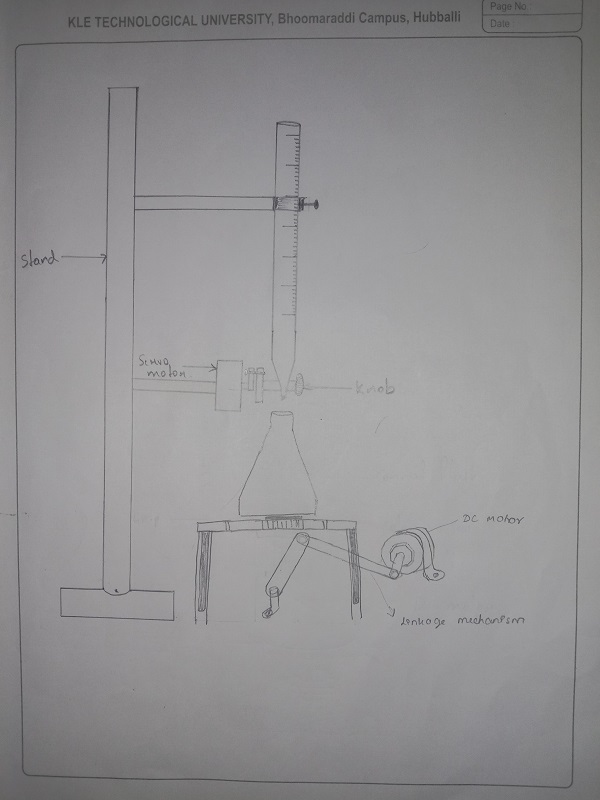 Page No.
KLE TECHNOLOGICAL UNIVERSITY, Bhoomaraddi Campus, Hubballi
Date
Stand
Servo
motor
Knob
DC motor
Linkage mechanism